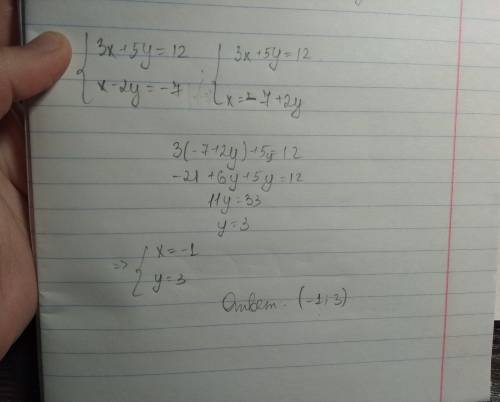 3x+5y=12 ; 3x+5y=12
x-2y=-7 x=-7+2y
3(-7+2y)+5y=12
-21+6y+5y=12
11y=33
y=3
=> x=-1
y=3
Ответ. (-1;3)